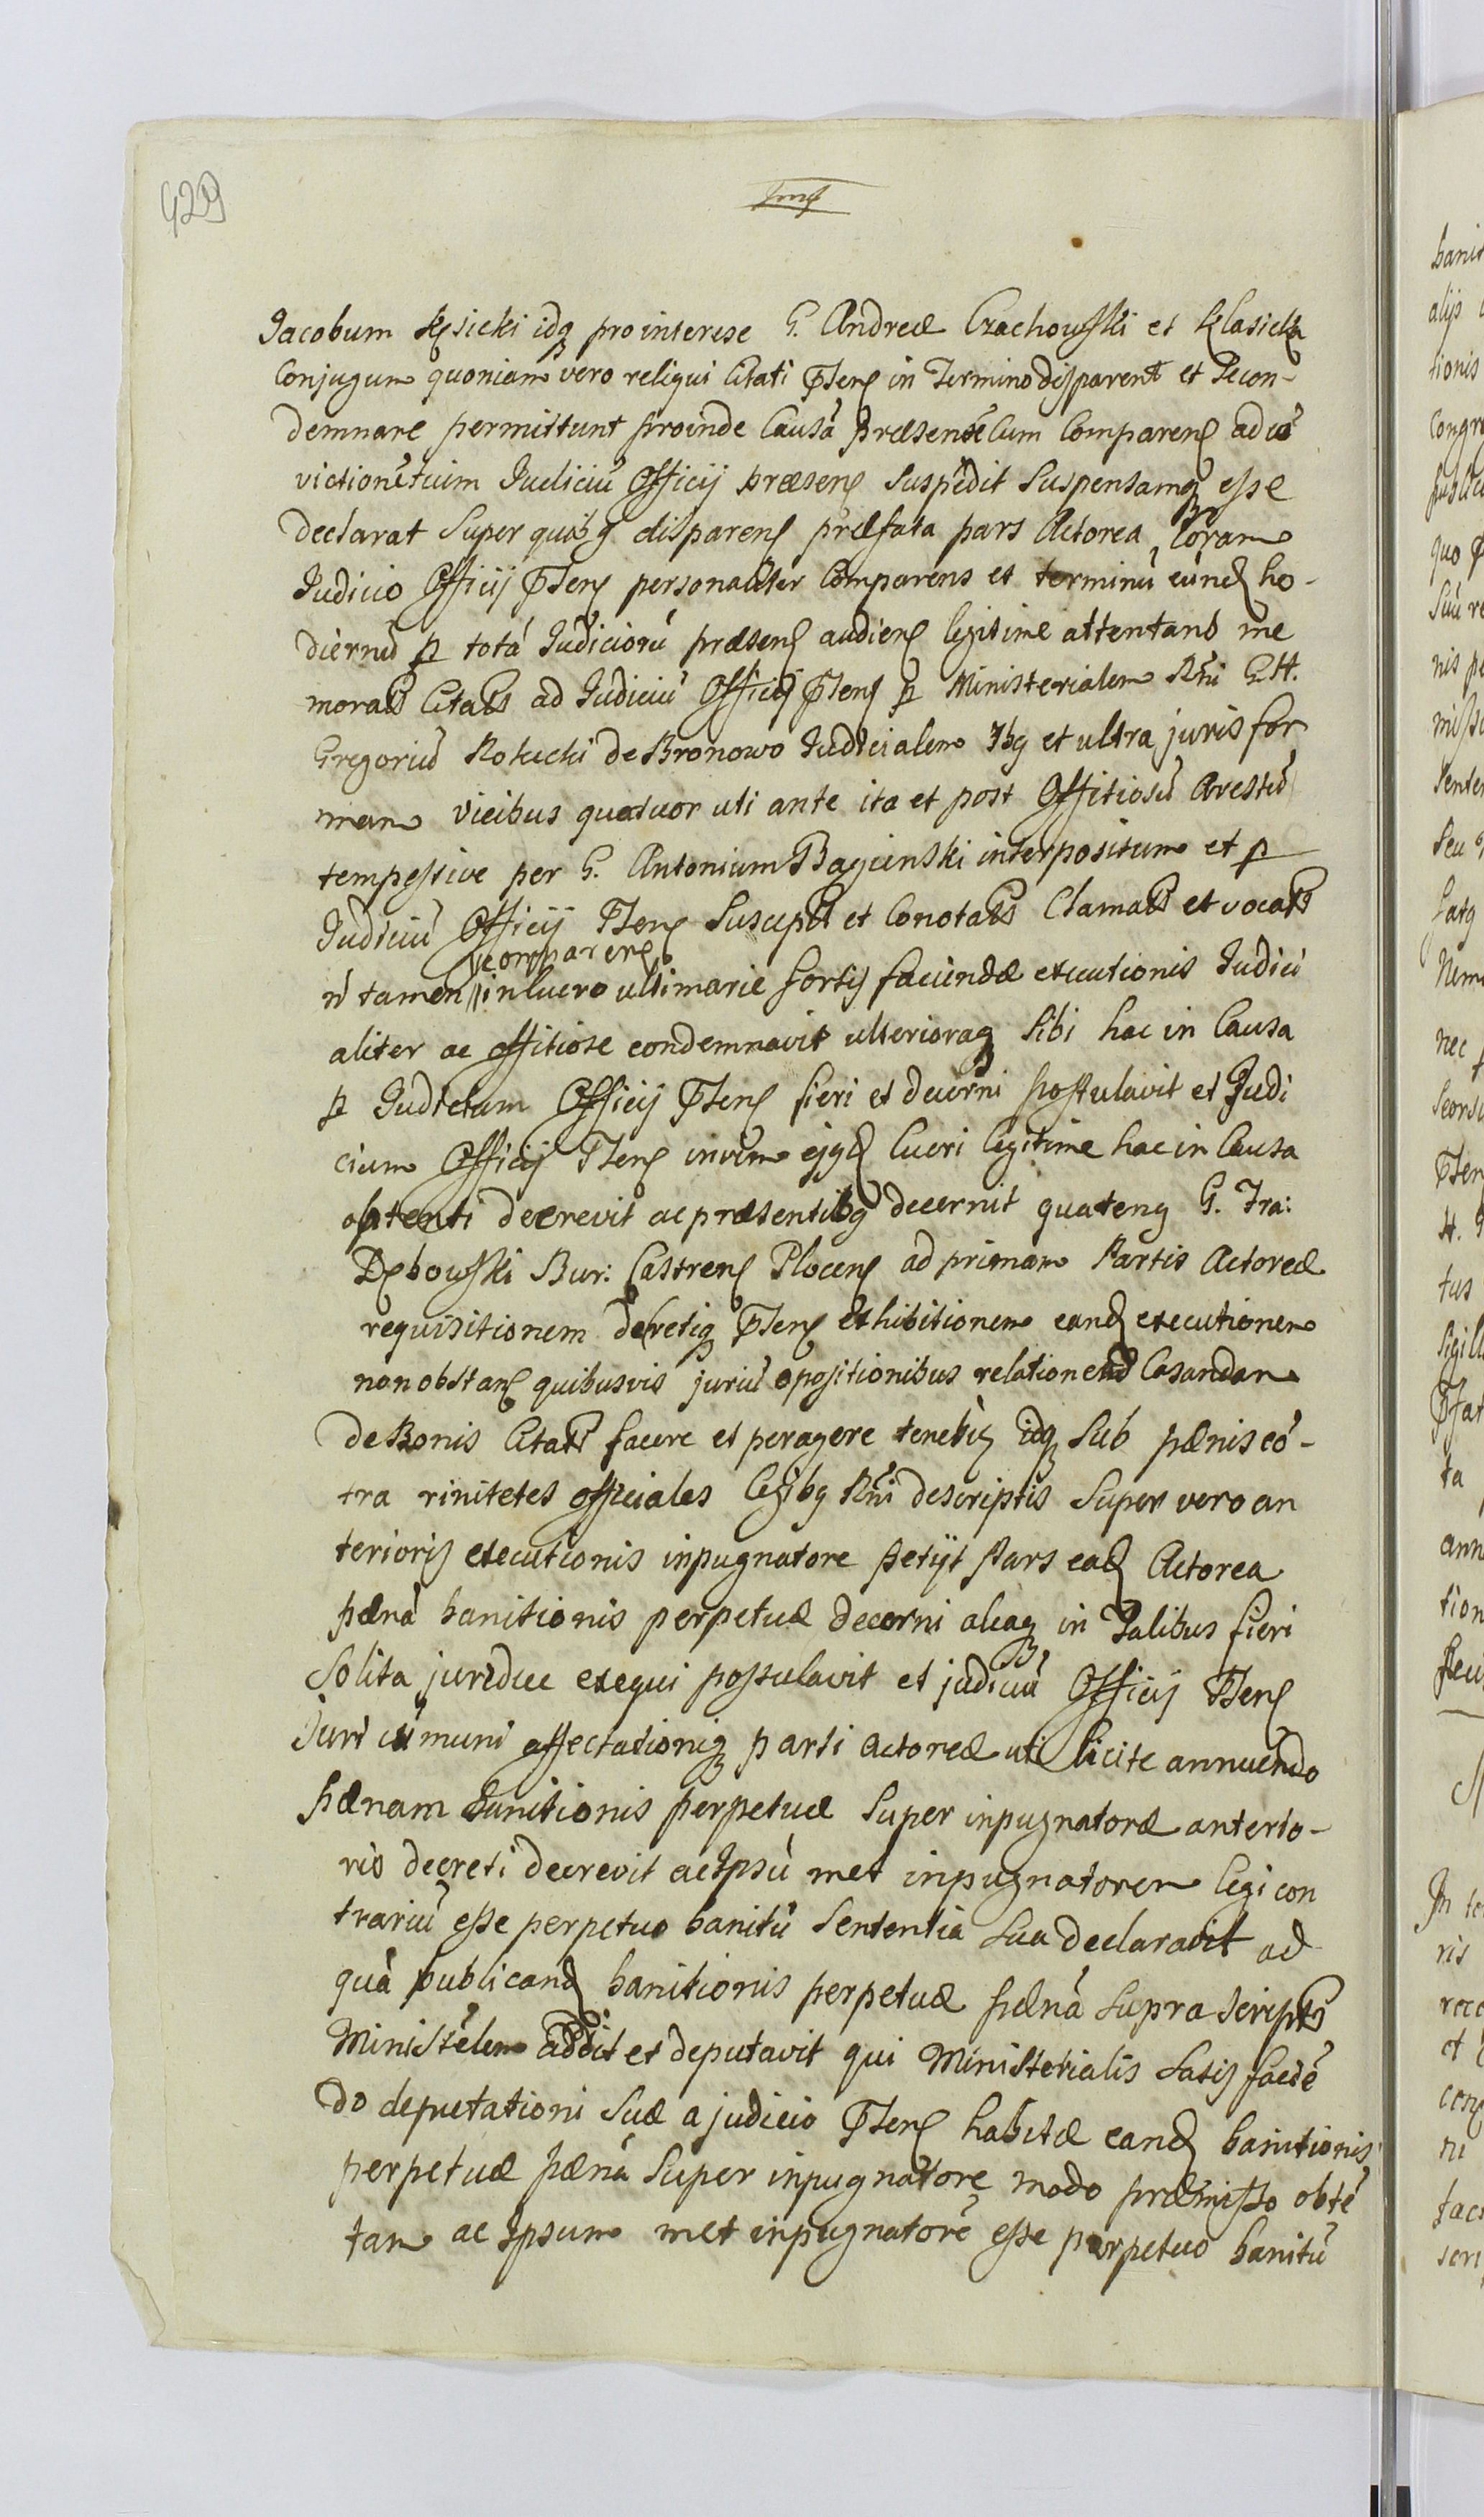 429
Jacobum Kęsicki idq prointerese G. Andreæ Czachowski et Klasicka
Conjugum quoniam vero reliqui Citati Pńtens in Termino disparent et se con-
demnare permittunt proinde Causã præsentẽ Cum Comparens ad
victionẽ Judiciũ Officij præsens Suspẽdit Suspensamq esse
declarat Super quibg disparens præfata pars Actorea Coram
Judicio Officij Pńtens personaliter Comparens et terminũ eũnd ho-
diernũ p totã Judiciorũ præsens audiens legitime attentans me
morats Citats ad Judiciũ Officij Pńtens p Ministerialem Rni GH.
Gregoriũ Rokicki de Bronowo Judicialem 3bg et ultra juris for
mam vicibus quatuor uti ante ita et post Offitiosũ Arestũ
tempestive per G. Antonium Bagienski interpositum et p
Judiciũ Officij Pńtens Suscepit et Conotats Clamats et vocats
comparens
ñ tamen in lucro ultimarie fortis faciendæ executionis Judici
aliter ac offitiose condemnavit ulterioraq Sibi hac in Causa
p Judicium Officij Pńtens fieri et decerni postulavit et Judi
cium Officij Pńtens invim ejgd lucri legitime hac in Causa
obtenti decrevit ac præsentibg decernit quateng G. Fra:
Dębowski Bur: Castrens Plocens ad primam Partis Actoreæ
requisitionem decretiq Pńtens exhibitionem eand executionem
non obstans quibusvis juriũ opositionibus relationeũd Casandam
de Bonis Citats facere et peragere tenebit idq Sub pænis cõ-
tra rinitetes officiales legibg Rni descriptis Super vero an
terioris executionis inpugnatore petijt Pars ead Actorea
pænã banitionis perpetuæ decerni aliaq in Talibus fieri
Solita juridice exequi postulavit et judiciũ Officij Pńtens
Juri cũmuni affectationiq parti actoreæ uti licite annuendo
pænam banitionis perpetuæ Super inpugnatoræ anterio-
ris decreti decrevit ac Ipsũ met inpugnatorem legi con
trariũ esse perpetuo banitũ Sententia Sua declaravit ad
quã publicand banitionis perpetuæ pænã Supra scripts
Ministẽlem addit et deputavit qui Ministerialis Satis faciẽ
do deputationi Suæ a judicio Pńtens habitæ eand banitionis
perpetuæ pænã Super inpugnatore modo præmisso obtẽ
tam ac Ipsum met inpugnatorẽ esse perpetuo banitũ